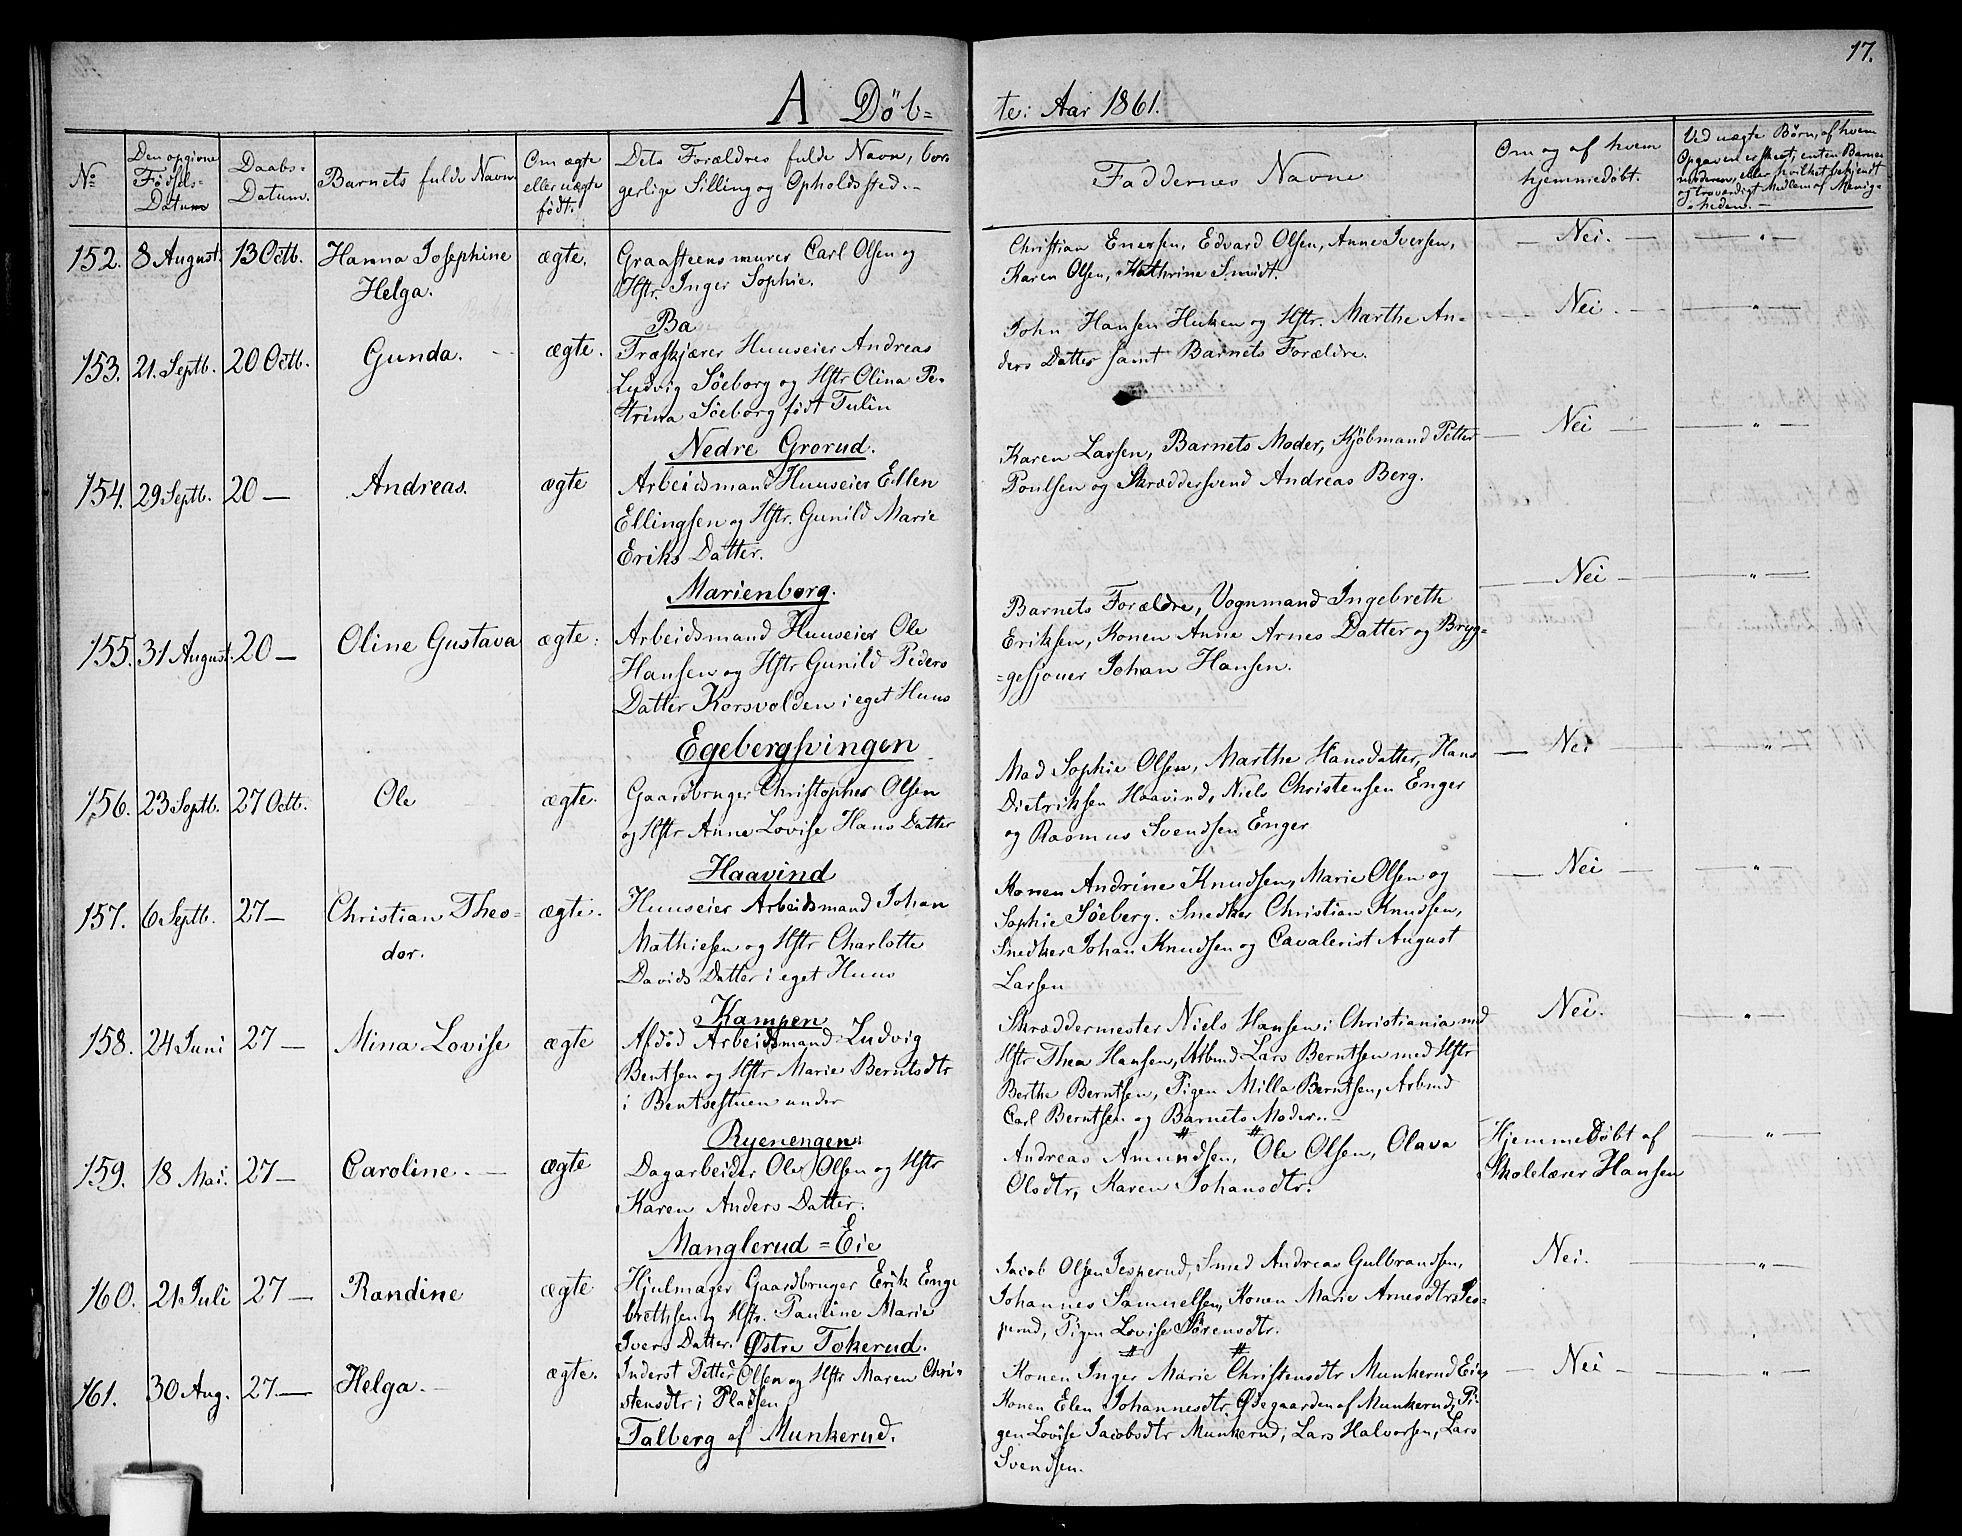 17.
A Döb-
te: Aar 1861.
No
Den opgivne
Födsels-
Datum
Daabs-
Datum.
Barnets fulde Navn.
Om ægte
eller uægte
født.
Dets Forældres fulde Navn, bor-
gerlige Stilling og Opholdssted.-
Faddernes Navne
Om og af hvem
hjemmedøbt.
Ved uægte Børn, af hvem
Opgaven er skeet, enten Barne-
moderen, eller hvilket bekjendt
og troværdigt Medlem af Menig-
heden.-
152. 8 August. 13 Octb. Hanna Josephine ægte. Graasteensmurer Carl Olsen og
Helga. Hstr. Inger Sophie.
Christian Enersen, Edvard Olsen, Anne Iversen, — Nei. — — " —
Karen Olsen, Kathrine Smidt.
Ba
153. 21. Septb. 20 Octb. Gunda. — ægte. Træskjærer Huuseier Andreas
Ludvig Söeborg og Hstr Olina Pe-
trina Söeborg født Tulin
John Hansen Huken og Hstr. Marthe An- Nei. — — " —
ders Datter samt Barnets Forældre.
Nedre Grorud.
154. 29 Septb. 20 — Andreas. ægte Arbeidsmand Huuseier Ellen
Ellingsen og Hstr. Gunild Marie
Eriks Datter.
Karen Larsen, Barnets Moder, Kjöbmand Petter — Nei — — " —
Poulsen og Skræddersvend Andreas Berg.
Marienborg.
155. 31 August. 20 — Oline Gustava ægte. Arbeidsmand Huuseier Ole
Hansen og Hstr Gunild Peders
Datter Korsvolden i eget Huus
Barnets Forældre, Vognmand Ingebreth — Nei — — " —
Eriksen, Konen Anne Arnes Datter og Bryg-
gesjouer Johan Hansen.
Egebergsvingen
156. 23 Septb. 27 Octb. Ole ægte. Gaardbruger Christopher Olsen
og Hstr Anne Lovise Hans Datter
Mad Sophie Olsen, Marthe Hansdatter, Hans — Nei — — " —
Dietriksen Haavind, Niels Christensen Enger
og Rasmus Svendsen Enger
Haavind
157. 6 Septb. 27 — Christian Theo- ægte. Huuseier Arbeidsmand Johan
dor. Mathiesen og Hstr Charlotte
Davids Datter i eget Huus
Konen Andrine Knudsen, Marie Olsen og — Nei — — " —
Sophie Söeberg. Snedker Christian Knudsen,
Snedker Johan Knudsen og Cavalerist August
Larsen
Kampen
158. 24 Juni 27 — Mina Lovise ægte Afdöd Arbeidsmand Ludvig
Bentsen og Hstr Marie Berntsdtr
i Bentsestuen under
Skræddermester Niels Hansen i Christiania med Nei. — " —
Hstr Thea Hansen, Arbmd Lars Berntsen med Hstr
Berthe Berntsen, Pigen Milla Berntsen, Arbmd
Carl Berntsen og Barnets Moder.—
Ryenengen.
159. 18 Mai. 27 — Caroline. — ægte Dagarbeider Ole Olsen og Hstr
Karen Anders Datter.
Andreas Amundsen, Ole Olsen, Olava Hjemmedöbt af — " —
Olsdtr, Karen Johansdtr. Skolelærer Hansen
Manglerud = Eie
160. 21 Juli 27 — Randine ægte Hjulmager Gaardbruger Erik Enge
brethsen og Hstr. Pauline Marie
Ivers Datter. Østre Tokerud.
Jacob Olsen Jesperud, Smed Andreas Gulbrandsen, Nei. — " —
Johannes Samuelsen, Konen Marie Arnesdtr Jes-
perud, Pigen Lovise Sörensdtr.
161. 30 Aug. 27. — Helga. — ægte. Inderst Petter Olsen og Hstr Maren Chri-
stensdtr i Pladsen
Talberg af Munkerud.
Konen Inger Marie Christensdtr Munkerud Eie, — Nei — — " —
Konen Elen Johannesdtr. Ödegaarden af Munkerud, Pi-
gen Lovise Jacobsdtr Munkerud, Lars Halvorsen, Lars
Svendsen.